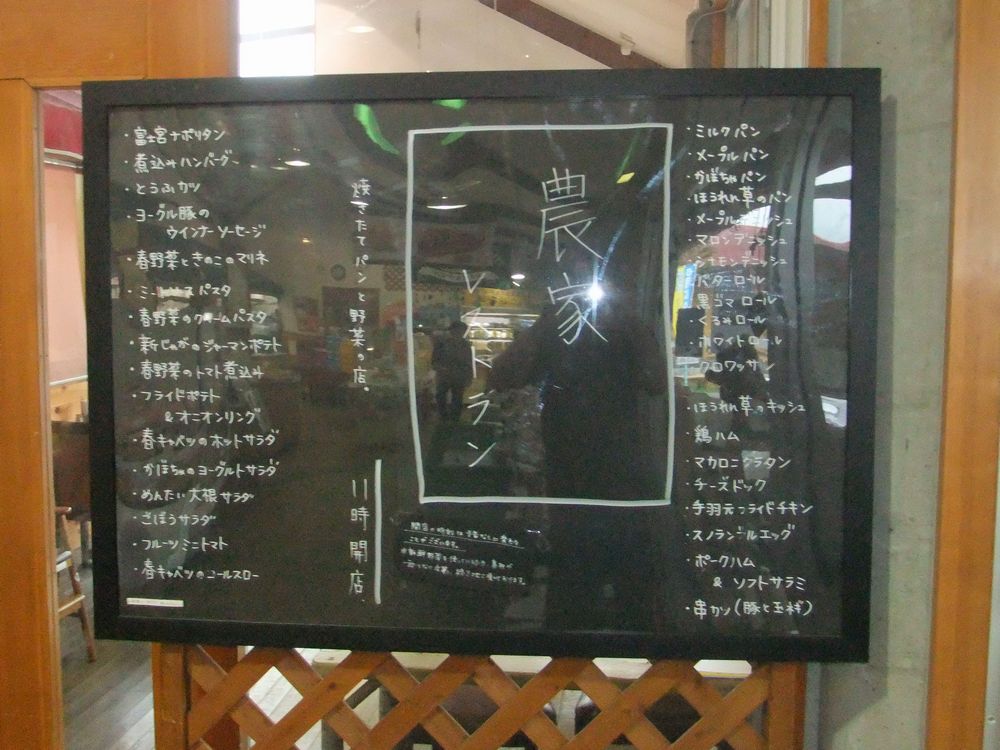 ・富士宮ナポリタン
・煮込みハンバーグ
・とうふカツ
・ヨーグル豚の
ウインナーソーセージ
・春野菜ときのこのマリネ
パスタ
・春野菜のクリームパスタ
・新じゃがのジャーマンポテト
・春野菜のトマト煮込み
・フライドポテト
＆オニオンリング
・春キャベツのホットサラダ
・かぼちゃのヨーグルトサラダ
・めんたい大根サラダ
・ごぼうサラダ
・フルーツミニトマト
・春キャベツのコールスロー
焼きたてパンと野菜の店。
11時開店。
農家
レストラン
・ミルクパン
・メープルパン
・かぼちゃパン
・ほうれん草のパン
・メープルデニッシュ
・マロンデニッシュ
・シナモンデニッシュ
・バターロール
・黒ゴマロール
・くるみロール
・ホワイトロール
・クロワッサン
・ほうれん草のキッシュ
・鶏ハム
・マカロニグラタン
・チーズドック
・手羽元フライドチキン
・スクランブルエッグ
・ポークハム
＆ソフトサラミ
・串カツ（豚と玉ネギ）